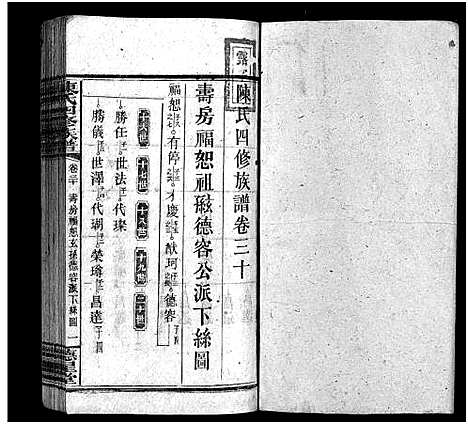 陳氏四修族譜卷三十
壽房福恕祖磁德容公派下絲圖
福恕 有停 才慶 猷珂 德容
十六世 十七世 十八世 十九世 二十世
勝任 世法 代瑧
勝儀 世澤 代瑚 榮璹 昌達 子四
陳氏四修族譜 卷三十 壽房福恕玄孫德容派下絲圖 一